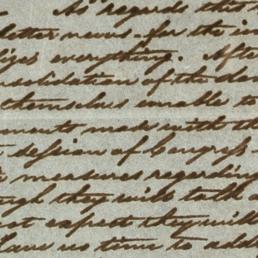 As regards the
letter news - for the in
lizes everything. Afte
nsolidation of the de
themselves unable to
ments made with th
t session of Congress -
measures regarding
ugh they will talk a
not expect they will
leave us time to add